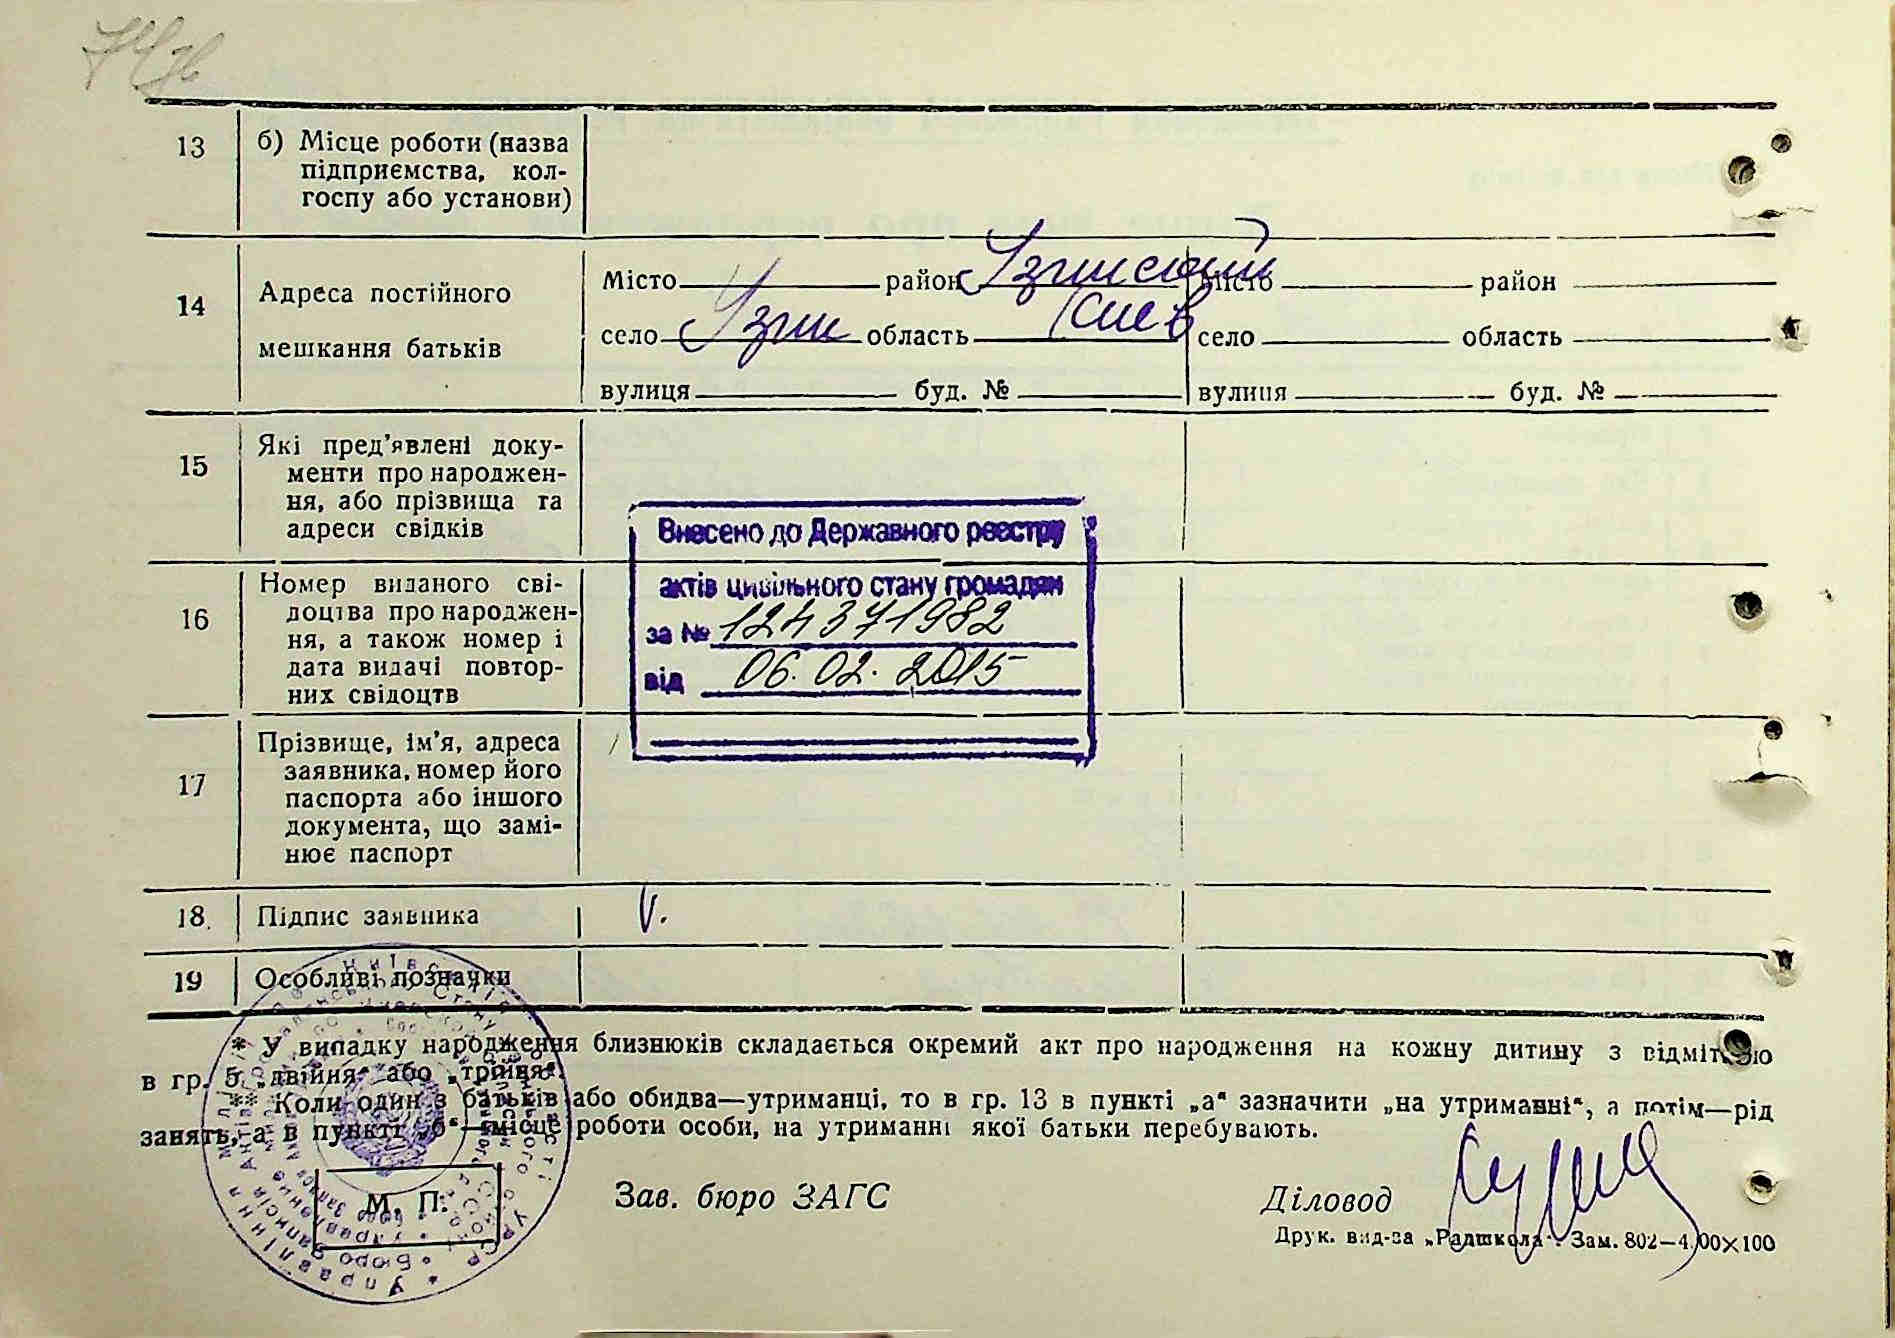 13 б) Місце роботи (назва
підприємства, кол-
госпу або установи)
14 Адреса постійного
мешкання батьків
Місто район Узинский місто район
село Узин область Киев село область
вулиця буд. № вулиця буд. №
15 Які пред'явлені доку-
менти про народжен-
ня, або прізвища та
адреси свідків
Внесено до Державного реєстру
актів цивільного стану громадян
за № 124371982
від 06.02.2015
16 Номер виданого сві-
доцтва про народжен-
ня, а також номер і
дата видачі повтор-
них свідоцтв
17 Прізвище, ім'я, адреса
заявника, номер його
паспорта або іншого
документа, що замі-
нює паспорт
18. Підпис заявника V.
19 Особливі позначки
* У випадку народження близнюків складається окремий акт про народження на кожну дитину з відміткою
в гр. 5 „двійня“ або „трійня“.
** Коли один з батьків або обидва—утриманці, то в гр. 13 в пункті „а“ зазначити „на утриманні“, а потім—рід
занять, а в пункті „б“—місце роботи особи, на утриманні якої батьки перебувають.
М. П. Зав. бюро ЗАГС Діловод
Друк. вид-ва „Радшкола“. Зам. 802—4.00×100